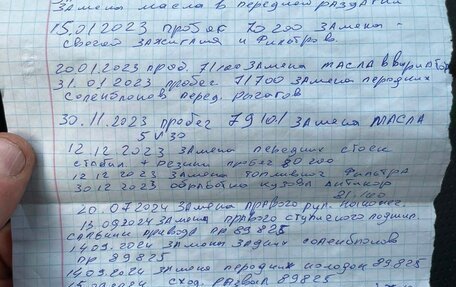 замена масла в передней раздатки
15.01.2023 пробег 70 200 замена -
свечей зажигания и фильтров.
20.01.2023 проб. 71100 замена масла в вариатор
31.01.2023 пробег 71700 замена передних
соленблоков перед. рычагов
30.11.2023 пробег 79101 замена масла
5W30
12.12.2023 замена передних стоек
стабил. + резинки пробег 80200
12.12 2023 замена топливног фильтра
30.12 2023 обработка кузова антикор
20.07.2024 замена правого рул. наконеч.
13.09.2024 замена правого ступичного подшип.
сальники привода пр 89825
14.09.2024 замены задних соленблоков
пр 89825
14.09.2024 замена передних колодок 89825
сход. развал 89825